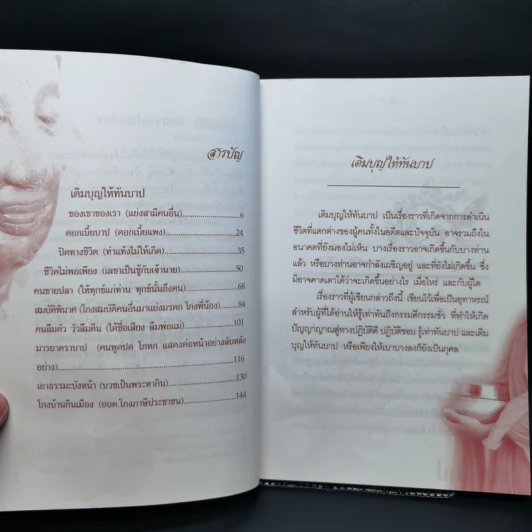 สารบัญ
เติมบุญให้ทันบาป
ของเขาของเรา (แย่งสามีคนอื่น)..............................6
ดอกเบี้ยบาป (ดอกเบี้ยแพง)..............................24
ปิดทางชีวิต (ท่าแท้งไม่ให้เกิด)..............................35
ชีวิตไม่พอเพียง (เลขาเป็นชู้กับเจ้านาย)..............................50
คนขายปลา (ให้ทุกข์แก่ท่าน ทุกข์นั้นถึงตน)..............................68
สมบัติพินาศ (โกงสมบัติคนอื่นมาแย่งมรดก โกงพี่น้อง)........84
คนลืมตัว วัวลืมตีน (ได้ชื่อเสียง ลืมพ่อแม่)..............................101
มารยาคราบาป (คนพูดปด โกหก แสดงต่อหน้าอย่างลับหลัง
อย่าง)..............................116
เอาธรรมะบังหน้า (บวชเป็นพระหากิน)..............................130
โกงบ้านกินเมือง (อบต.โกงภาษีประชาชน)..............................144
เติมบุญให้ทันบาป
เติมบุญให้ทันบาป เป็นเรื่องราวที่เกิดจากการดำเนิน
ชีวิตที่แตกต่างของผู้คนทั้งในอดีตและปัจจุบัน อาจรวมถึงใน
อนาคตที่ยังมองไม่เห็น บางเรื่องราวอาจเกิดขึ้นกับบางท่าน
แล้ว หรือบางท่านอาจกำลังเผชิญอยู่ และที่ยังไม่เกิดขึ้น ซึ่ง
มิอาจคาดเดาได้ว่าจะเกิดขึ้นอย่างไร เมื่อไหร่ และกับผู้ใด
เรื่องราวที่ผู้เขียนกล่าวถึงนี้ เขียนไว้เพื่อเป็นอุทาหรณ์
สำหรับผู้ที่ได้อ่านให้รู้เท่าทันถึงกรรมดีกรรมชั่ว ที่ทำให้เกิด
ปัญญาญาณสู่ทางปฏิบัติดี ปฏิบัติชอบ รู้เท่าทันบาป และเติม
บุญให้ทันบาป หรือเพียงให้เบาบางลงก็ยังเป็นกุศล